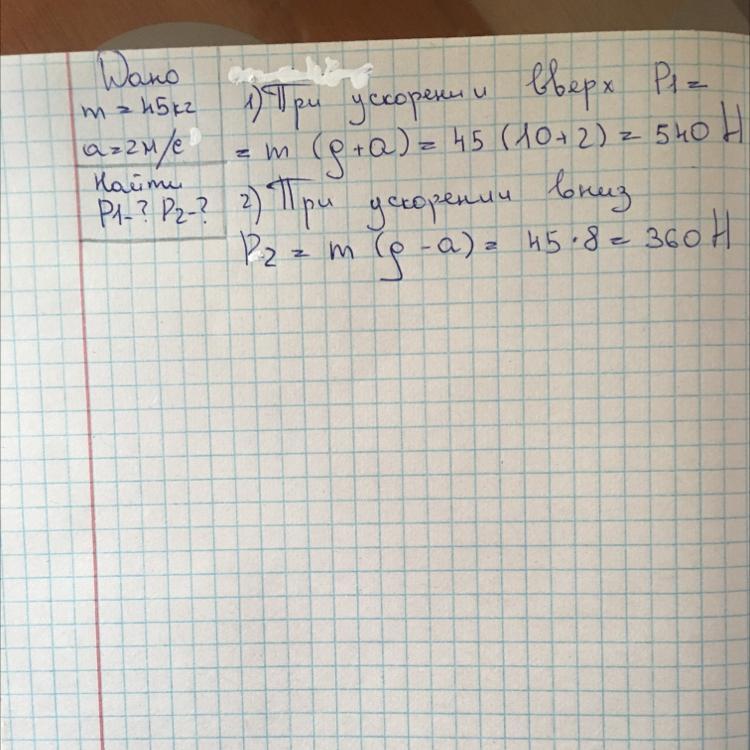 Дано
m = 45 кг
a = 2 м/с
Найти
P1-? P2-?
1) При ускорении вверх P1 =
= m (g + a) = 45 (10 + 2) = 540 Н
2) При ускорении вниз
P2 = m (g - a) = 45 · 8 = 360 Н